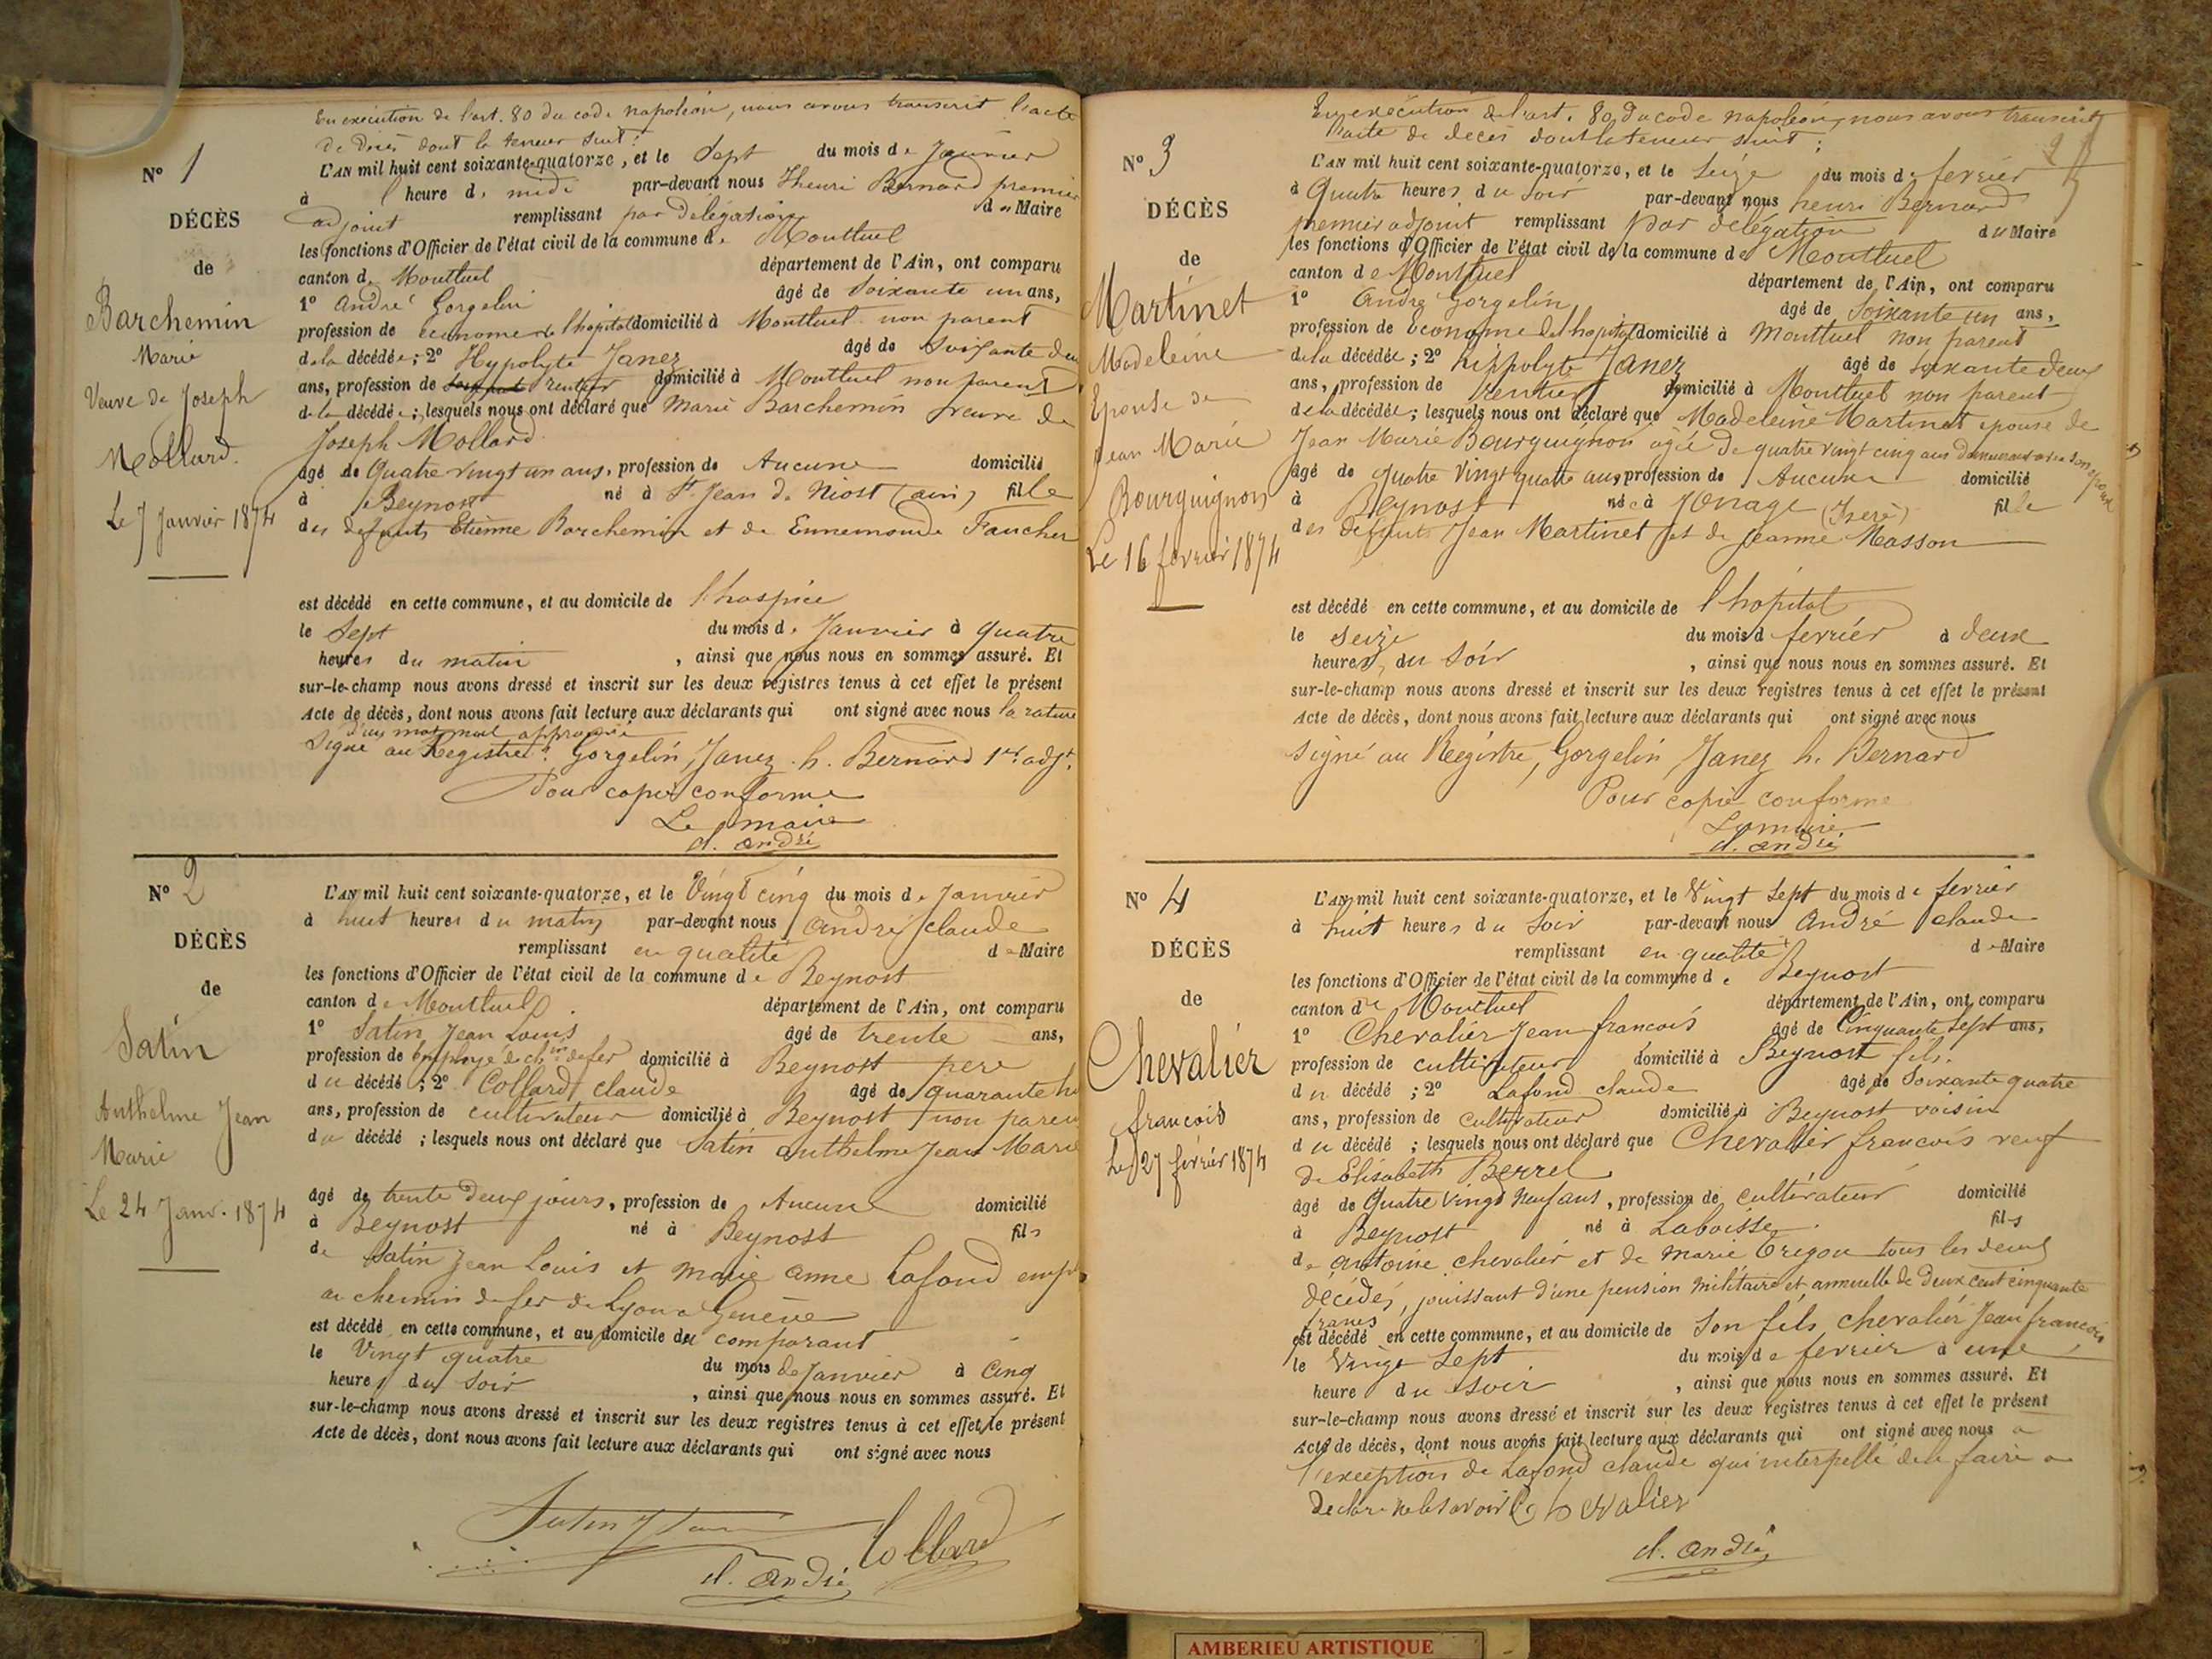 En exécution de l'art. 80 du code napoléon, nous avons transcrit l'acte
de décès dont la teneur suit :
N° 1
DÉCÈS
de
Barchemin
Marie
Veuve de Joseph
Mollard.
Le 7 Janvier 1874
L'AN mil huit cent soixante-quatorze, et le Sept du mois de Janvier
à l heure de midi par-devant nous Thenri Bernard premier
adjoint remplissant par Délégation du Maire
les fonctions d'Officier de l'état civil de la commune de Montluel
canton de Montluel département de l'Ain, ont comparu
1° André Gorgelin âgé de Soixante un ans,
profession de économe de l'hopital domicilié à Montluel non parent
de la décédée ; 2° Hypolyte Janez âgé de Soixante deux
ans, profession de rentier domicilié à Montluel non parent
de la décédée ; lesquels nous ont déclaré que Marie Barchemin veuve de
Joseph Mollard
âgé de Quatre vingt un ans, profession de Aucune domicilié
à Beynost né à St Jean de Niost (ain) fille
des défunts Etienne Barchemin et de Ennemonde Faucher
est décédé en cette commune, et au domicile de l'hospice
le Sept du mois de Janvier à quatre
heures du matin , ainsi que nous nous en sommes assuré. Et
sur-le-champ nous avons dressé et inscrit sur les deux registres tenus à cet effet le présent
Acte de décès, dont nous avons fait lecture aux déclarants qui ont signé avec nous la rature
d'un mot nul approuvée
Signé au Registre : Gorgelin, Janez . h. Bernard 1er adjt.
Pour copie conforme
Le maire
cl. andré
N° 2
DÉCÈS
de
Satin
Anthelme Jean
Marie
Le 24 Janv. 1874
L'AN mil huit cent soixante-quatorze, et le Vingt cinq du mois de Janvier
à huit heures du matin par-devant nous André claude
remplissant en qualité de Maire
les fonctions d'Officier de l'état civil de la commune de Beynost
canton de Montluel département de l'Ain, ont comparu
1° Satin Jean Louis âgé de trente ans,
profession de Employé de chin de fer domicilié à Beynost père
du décédé ; 2° Collard claude âgé de quarante
ans, profession de cultivateur domicilié à Beynost non paren
du décédé ; lesquels nous ont déclaré que Satin anthelme Jean Marie
âgé de trente deux jours, profession de Aucune domicilié
à Beynost né à Beynost fils
de Satin Jean Louis et marie anne Lafond empl
au chemin de fer de Lyon a Genève
est décédé en cette commune, et au domicile du comparant
le Vingt quatre du mois de Janvier à Cinq
heures du Soir , ainsi que nous nous en sommes assuré. Et
sur-le-champ nous avons dressé et inscrit sur les deux registres tenus à cet effet le présent
Acte de décès, dont nous avons fait lecture aux déclarants qui ont signé avec nous
Satin Collard
cl. andré
En exécution de l'art. 80 du code napoléon, nous avons transcrit
l'acte de décès dont la teneur suit :
N° 3
DÉCÈS
de
Martinet
Madeleine
Epouse de
Jean Marie
Bourguignon
Le 16 février 1874
L'AN mil huit cent soixante-quatorze, et le Seize du mois de février
à Quatre heures du Soir par-devant nous henri Bernard
premier adjoint remplissant par délégation du Maire
les fonctions d'Officier de l'état civil de la commune de Montluel
canton de Montluel département de l'Ain, ont comparu
1° andre Gorgelin âgé de Soixante un ans,
profession de Econome de l'hopital domicilié à Montluel non parent
de la décédée ; 2° hippolyte Janez âgé de soixante deux
ans, profession de rentier domicilié à Montluel non parent
de la décédée ; lesquels nous ont déclaré que Madeleine Martinet epouse de
Jean Marie Bourguignon agée de quatre vingt cinq ans demeurant avec son epoux
âgé de quatre Vingt quatre ans, profession de Aucune domicilié
à Beynost née à Jonage (Isere) fille
des Défunts Jean Martinet et de Jeanne Masson
est décédé en cette commune, et au domicile de l'hopital
le seize du mois d fevrier à deux
heures, du Soir , ainsi que nous nous en sommes assuré. Et
sur-le-champ nous avons dressé et inscrit sur les deux registres tenus à cet effet le présent
Acte de décès, dont nous avons fait lecture aux déclarants qui ont signé avec nous
Signé au Registre, Gorgelin, Janez h. Bernard
Pour copie conforme
Le maire
cl. andré
N° 4
DÉCÈS
de
Chevalier
francois
Le 27 février 1874
L'AN mil huit cent soixante-quatorze, et le Vingt Sept du mois de fevrier
à huit heures du Soir par-devant nous André claude
remplissant en qualité de Maire
les fonctions d'Officier de l'état civil de la commune de Beynost
canton de Montluel département de l'Ain, ont comparu
1° Chevalier Jean francois âgé de Cinquante Sept ans,
profession de cultivateur domicilié à Beynost fils.
du décédé ; 2° Lafond claude âgé de Soixante quatre
ans, profession de cultivateur domicilié à Beynost voisin
du décédé ; lesquels nous ont déclaré que Chevalier francois veuf
de Elisabeth Berrel
âgé de Quatre vingt neuf ans, profession de cultivateur domicilié
à Beynost né à Laboisse fils
de antoine chevalier et de marie Gregou tous les deux
décédés, jouissant d'une pension militaire et annuelle de deux cent cinquante
francs
est décédé en cette commune, et au domicile de Son fils chevalier Jean francois
le Vingt Sept du mois de fevrier à une
heure du soir , ainsi que nous nous en sommes assuré. Et
sur-le-champ nous avons dressé et inscrit sur les deux registres tenus à cet effet le présent
Acte de décès, dont nous avons fait lecture aux déclarants qui ont signé avec nous a
l'exception de Lafond claude qui interpellé de le faire a
declaré ne le savoir Chevalier
cl. andré
AMBERIEU ARTISTIQUE